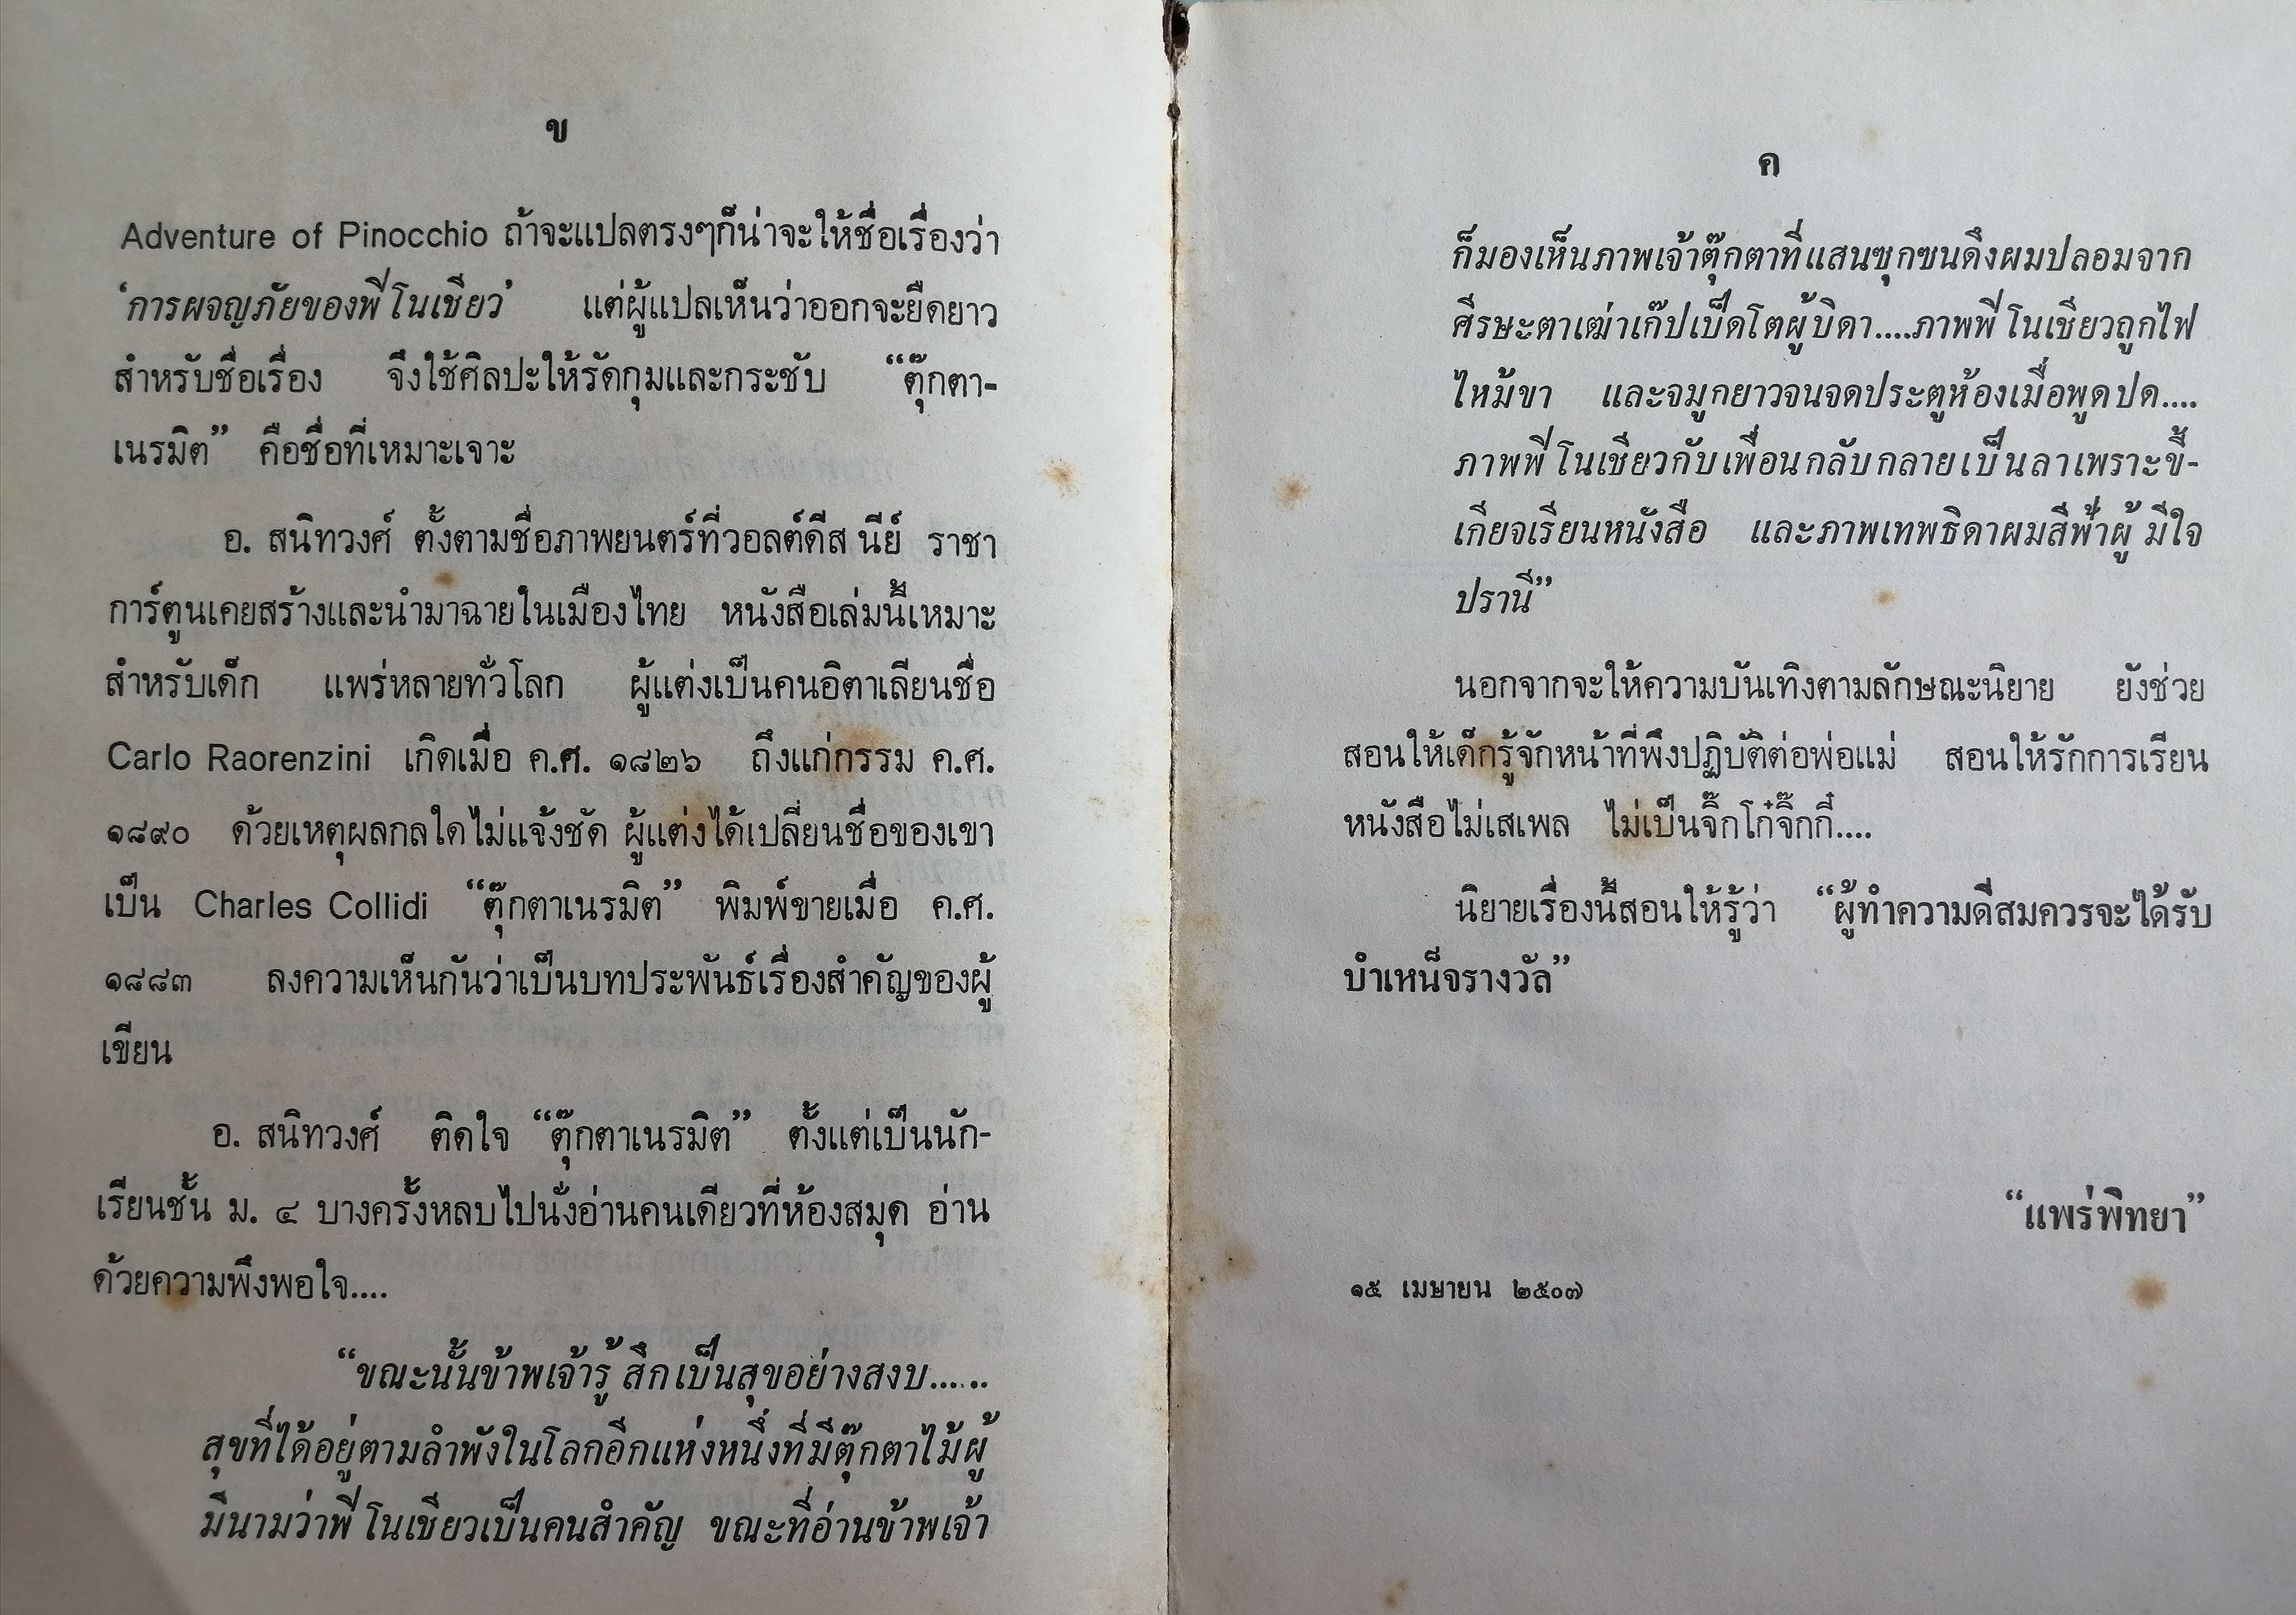 ข
Adventure of Pinocchio ถ้าจะแปลตรงๆก็น่าจะให้ชื่อเรื่องว่า
‘การผจญภัยของพีโนเชียว’ แต่ผู้แปลเห็นว่าออกจะยืดยาว
สำหรับชื่อเรื่อง จึงใช้ศิลปะให้รัดกุมและกระชับ “ตุ๊กตา-
เนรมิต” คือชื่อที่เหมาะเจาะ
อ. สนิทวงศ์ ตั้งตามชื่อภาพยนตร์ที่วอลต์ดีสนีย์ ราชา
การ์ตูนเคยสร้างและนำมาฉายในเมืองไทย หนังสือเล่มนี้เหมาะ
สำหรับเด็ก แพร่หลายทั่วโลก ผู้แต่งเป็นคนอิตาเลียนชื่อ
Carlo Raorenzini เกิดเมื่อ ค.ศ. ๑๘๒๖ ถึงแก่กรรม ค.ศ.
๑๘๙๐ ด้วยเหตุผลกลใดไม่แจ้งชัด ผู้แต่งได้เปลี่ยนชื่อของเขา
เป็น Charles Collidi “ตุ๊กตาเนรมิต” พิมพ์ขายเมื่อ ค.ศ.
๑๘๘๓ ลงความเห็นกันว่าเป็นบทประพันธ์เรื่องสำคัญของผู้
เขียน
อ. สนิทวงศ์ ติดใจ “ตุ๊กตาเนรมิต” ตั้งแต่เป็นนัก-
เรียนชั้น ม. ๔ บางครั้งหลบไปนั่งอ่านคนเดียวที่ห้องสมุด อ่าน
ด้วยความพึงพอใจ....
“ขณะนั้นข้าพเจ้ารู้สึกเป็นสุขอย่างสงบ......
สุขที่ได้อยู่ตามลำพังในโลกอีกแห่งหนึ่งที่มีตุ๊กตาไม้ผู้
มีนามว่าพีโนเชียวเป็นคนสำคัญ ขณะที่อ่านข้าพเจ้า
ค
ก็มองเห็นภาพเจ้าตุ๊กตาที่แสนซุกซนดึงผมปลอมจาก
ศีรษะตาเฒ่าเก๊ปเป็ดโตผู้บิดา....ภาพพีโนเชียวถูกไฟ
ไหม้ขา และจมูกยาวจนจดประตูห้องเมื่อพูดปด....
ภาพพีโนเชียวกับเพื่อนกลับกลายเป็นลาเพราะขี้-
เกียจเรียนหนังสือ และภาพเทพธิดาผมสีฟ้าผู้มีใจ
ปรานี”
นอกจากจะให้ความบันเทิงตามลักษณะนิยาย ยังช่วย
สอนให้เด็กรู้จักหน้าที่พึงปฏิบัติต่อพ่อแม่ สอนให้รักการเรียน
หนังสือไม่เสเพล ไม่เป็นจิ๊กโก๋จิ๊กกี๋....
นิยายเรื่องนี้สอนให้รู้ว่า “ผู้ทำความดีสมควรจะได้รับ
บำเหน็จรางวัล”
“แพร่พิทยา”
๑๕ เมษายน ๒๕๐๗